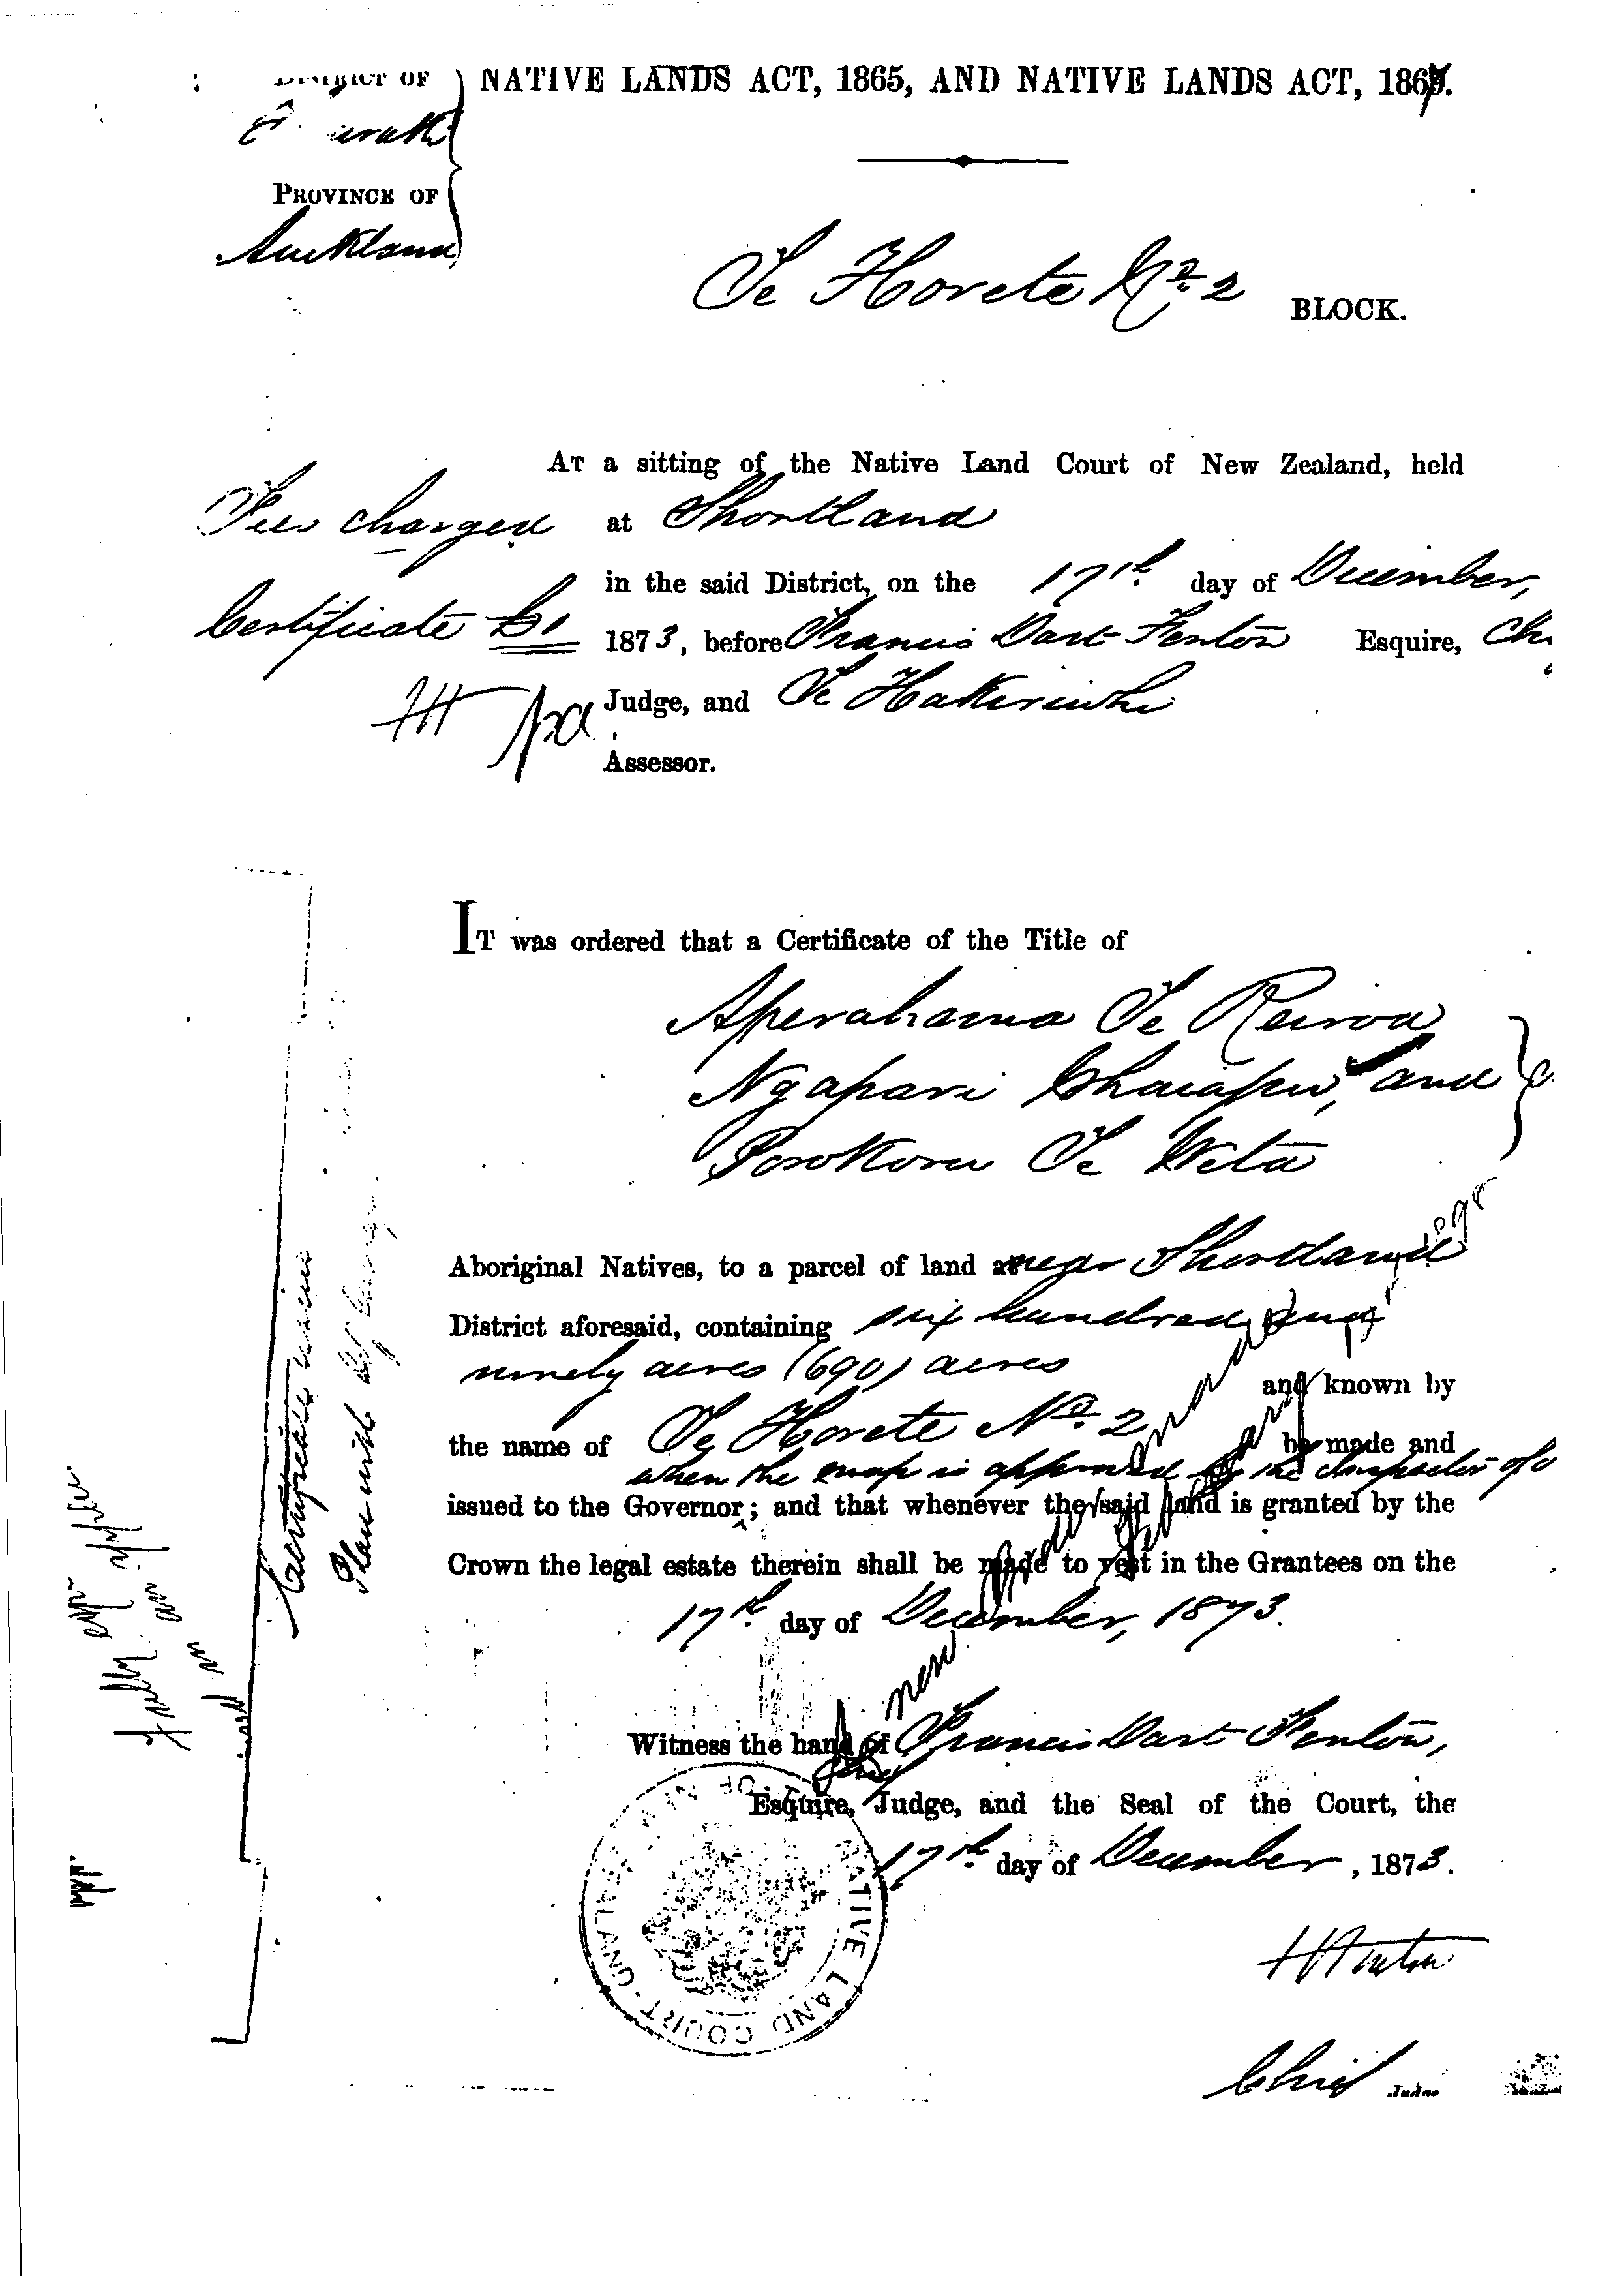 DISTRICT OF
PROVINCE OF
Auckland
NATIVE LANDS ACT, 1865, AND NATIVE LANDS ACT, 1867.
Te Horete No. 2 BLOCK.
AT a sitting of the Native Land Court of New Zealand, held
Fees charged at Shortland
in the said District, on the 17th day of December,
Certificate £1 1873, before Francis Dart Fenton Esquire,
Judge, and Te Hakiriwhi
Assessor.
IT was ordered that a Certificate of the Title of
Aperahama Te Reiroa
Ngapari Whaiapu, and
Porokoru Te Weta
Aboriginal Natives, to a parcel of land near Shortland
District aforesaid, containing six hundred and
ninety acres (690) acres
and known by
the name of Te Horete No. 2 be made and
when the map is approved by the Inspector of
issued to the Governor; and that whenever the said land is granted by the
Crown the legal estate therein shall be made to vest in the Grantees on the
17th day of December, 1873.
Witness the hand of Francis Dart Fenton,
Esquire, Judge, and the Seal of the Court, the
17th day of December, 1873.
Fenton
Chief Judge
NATIVE LAND COURT OF NEW ZEALAND
Certificate
Plan